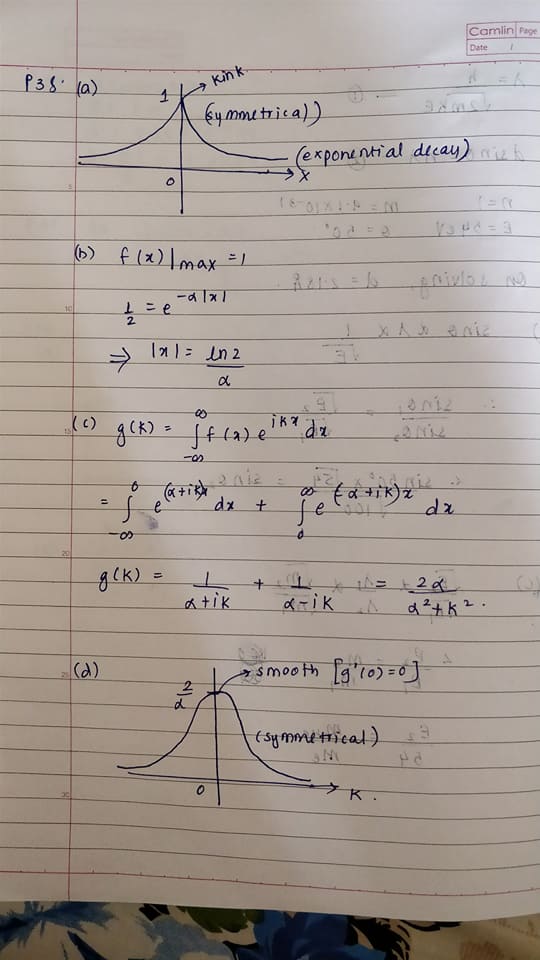 Camlin Page
Date 1
P38. (a)
1
kink
(symmetrical)
(exponential decay)
0 x
(b) f(x)|max = 1
1/2 = e^{-α|x|}
⇒ |x| = ln 2 / α
(c) g(k) = ∫_{-∞}^{∞} f(x) e^{ikx} dx
= ∫_{-∞}^{0} e^{(α+ik)x} dx + ∫_{0}^{∞} e^{(-α+ik)x} dx
g(k) = 1/(α+ik) + 1/(α-ik) = 2α/(α²+k²).
(d)
2/α
smooth [g'(0)=0]
(symmetrical)
0 K.